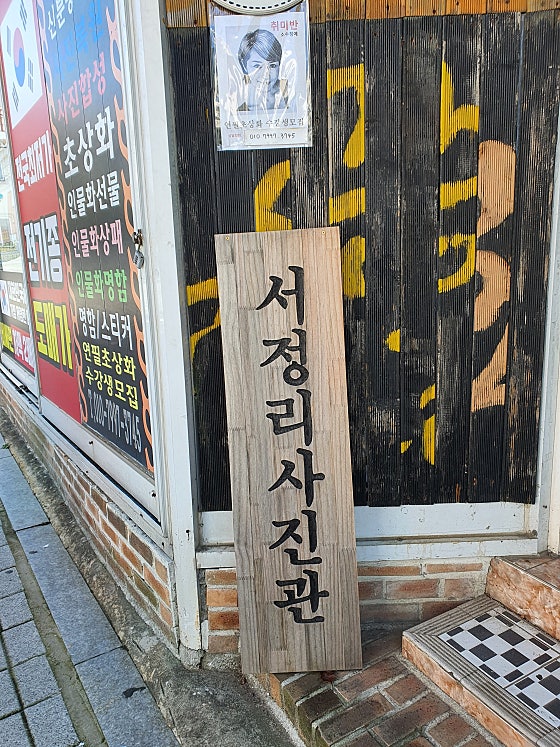 취미반
소수정예
연필초상화 수강생모집
010 7997 3745
서정리사진관
사진합성
초상화
인물화선물
인물화상패
인물화명함
명함/스티커
연필초상화
수강생모집
T.010-7997-3745
전국최저가
전기종
도매가